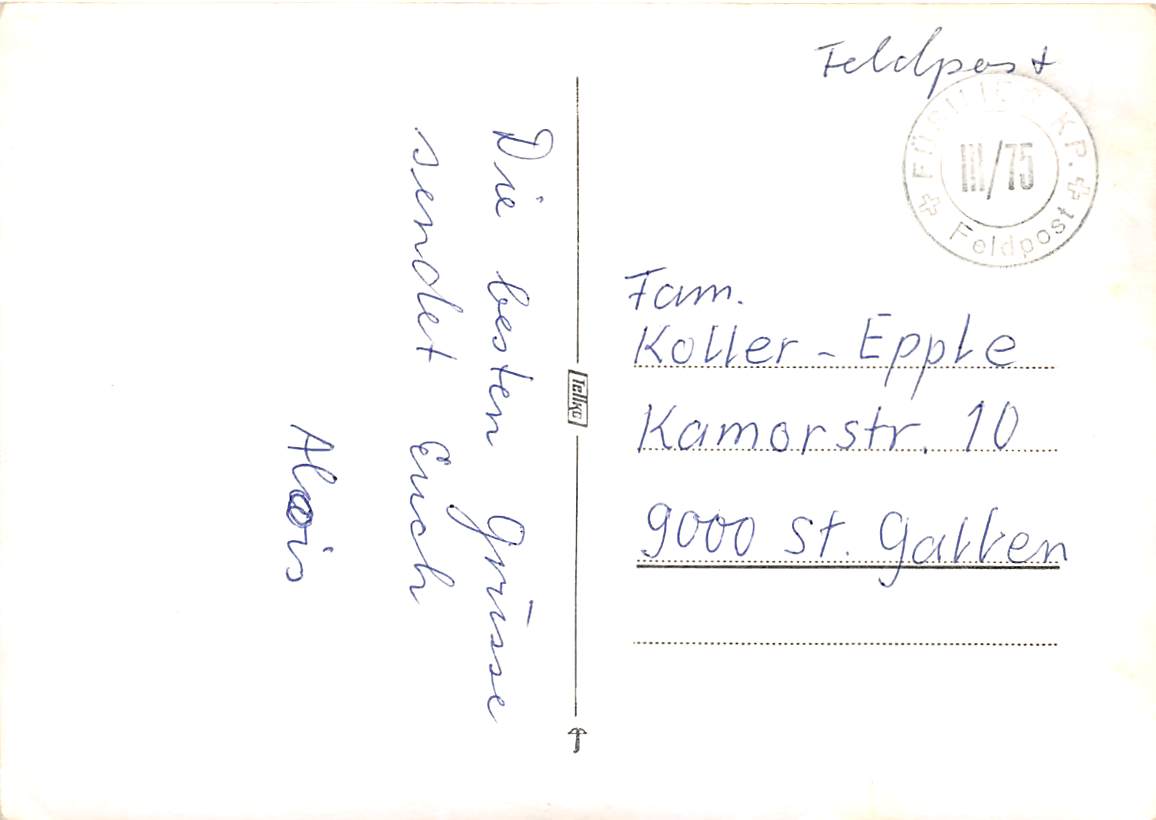 Die besten Grüsse
sendet Euch
Alois
Tellko
Feldpost
FÜSILIER KP.
III/75
Feldpost
Fam.
Koller - Epple
Kamorstr. 10
9000 St. Gallen